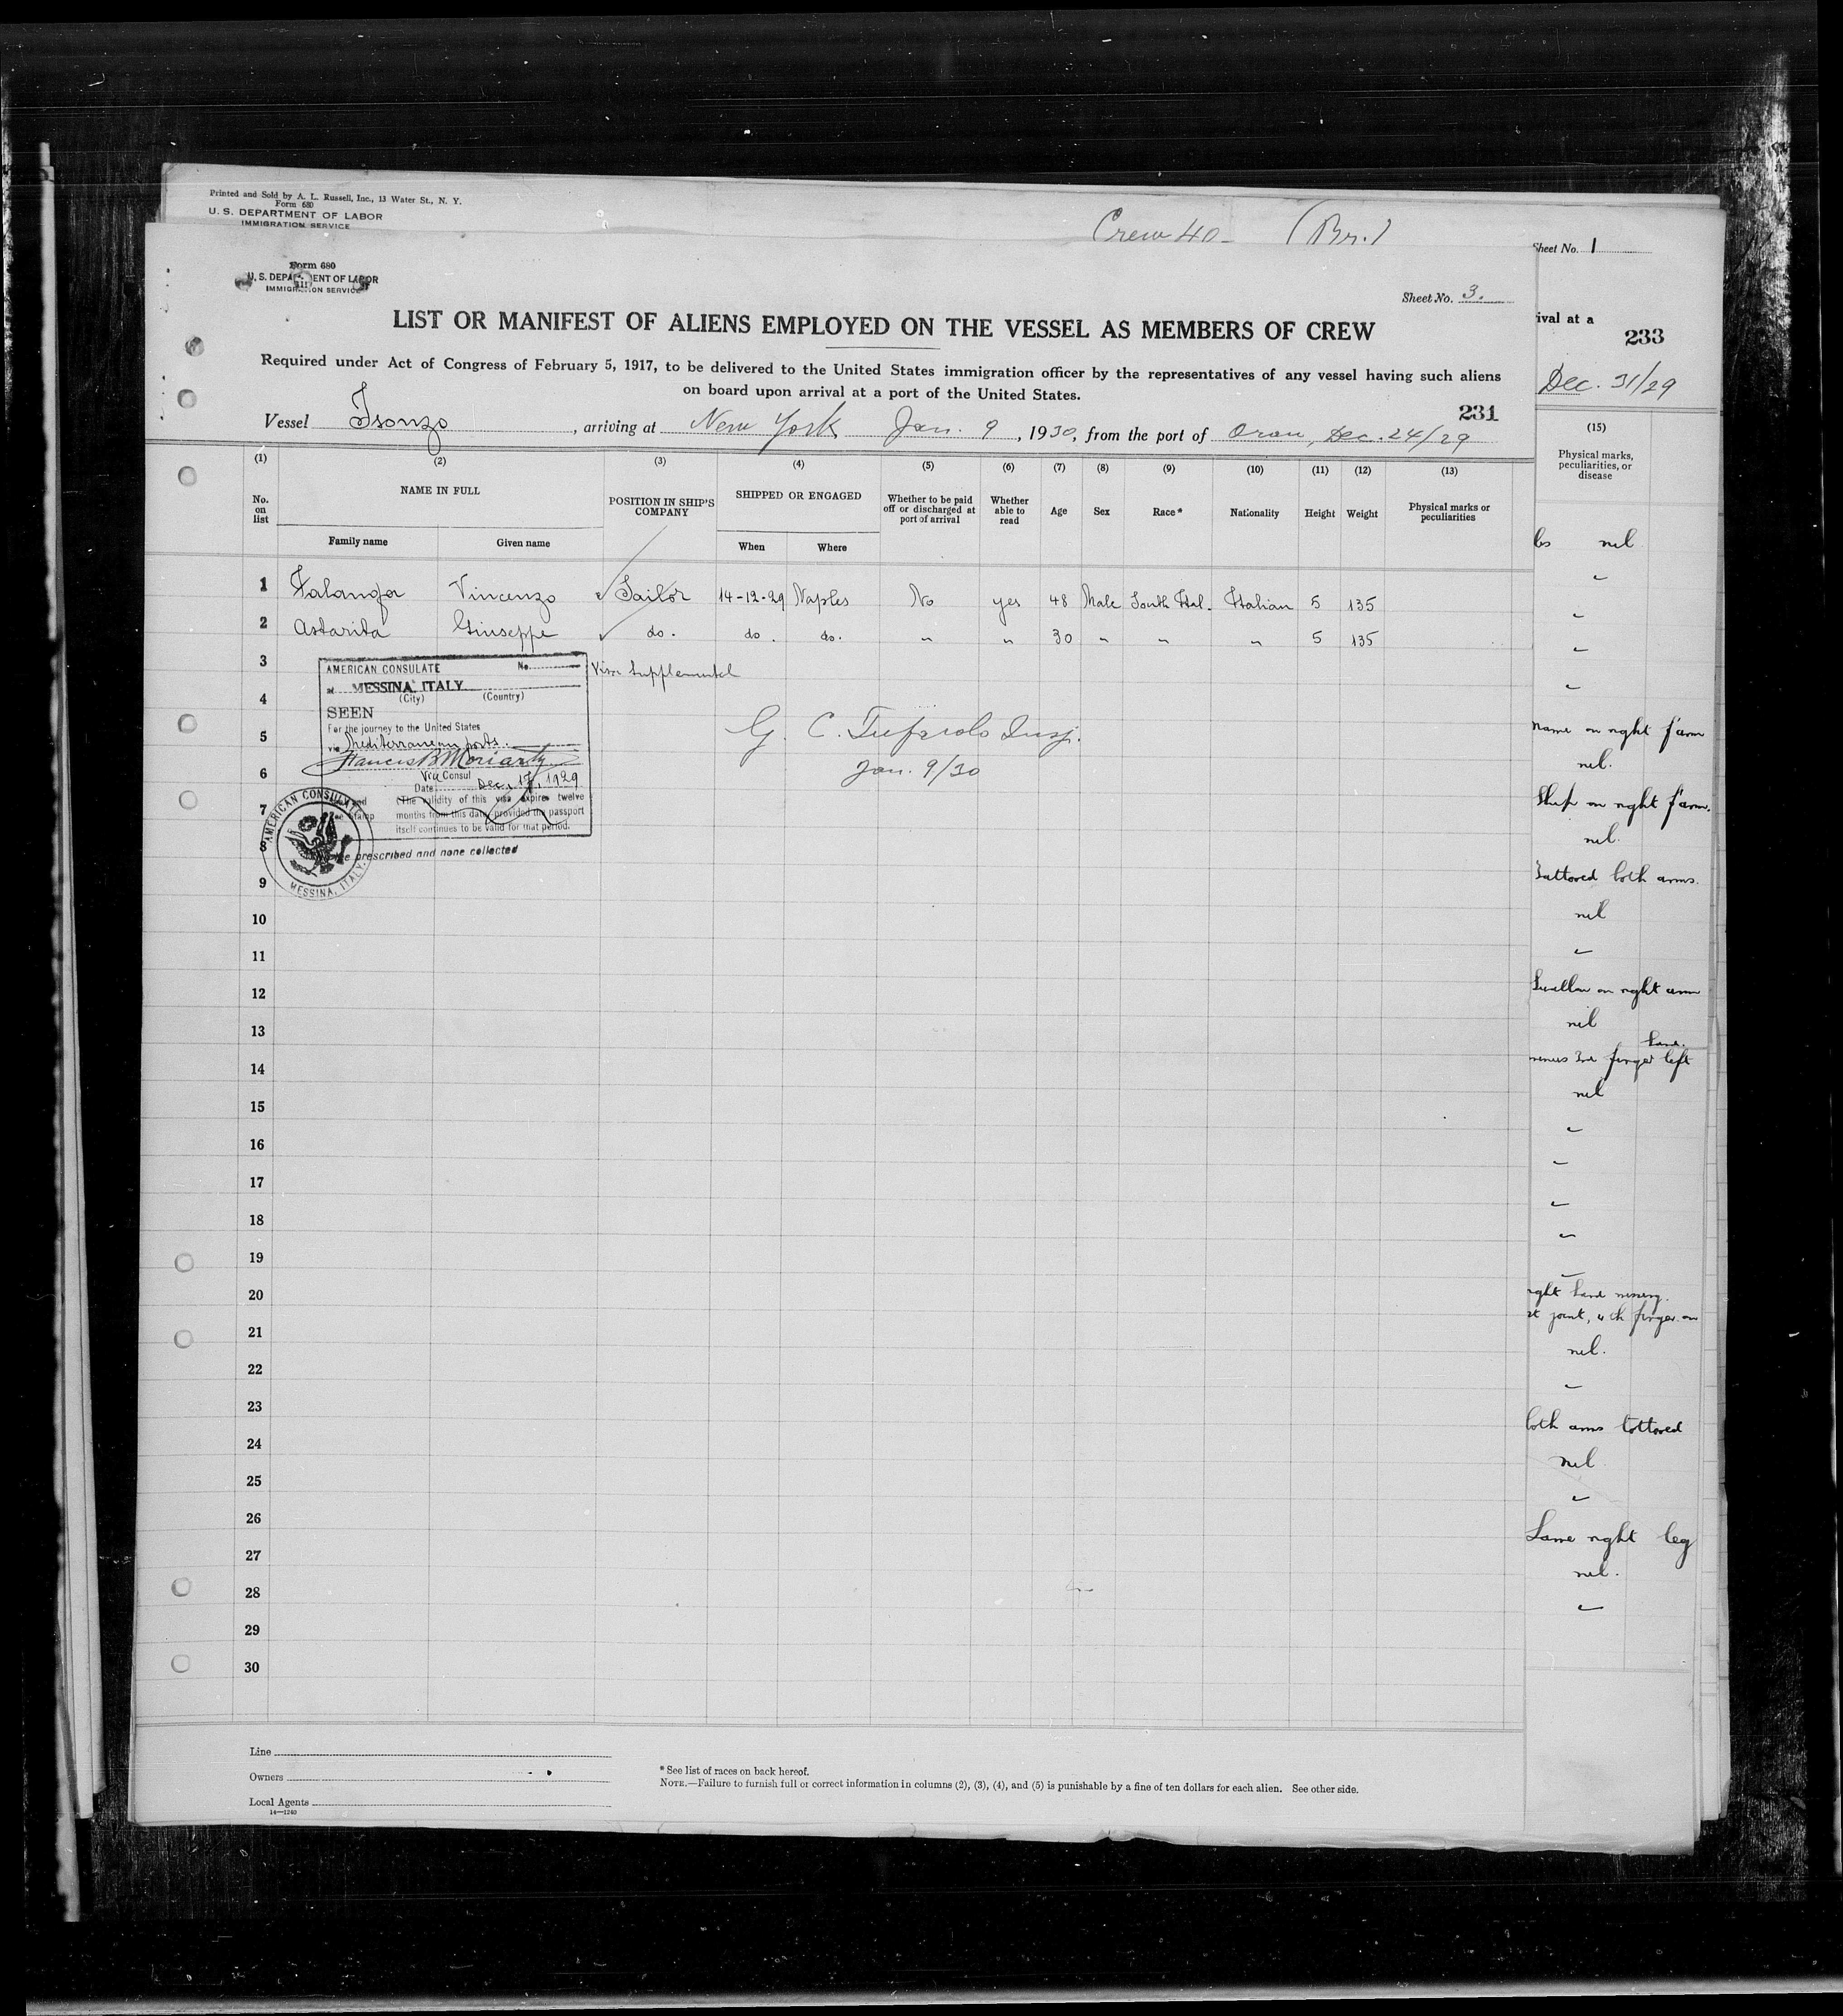 Printed and Sold by A. L. Russell, Inc., 13 Water St., N. Y.
Form 680
U. S. DEPARTMENT OF LABOR
IMMIGRATION SERVICE
Crew 40 - (Br.)
Sheet No. 1
Form 680
U. S. DEPARTMENT OF LABOR
IMMIGRATION SERVICE
Sheet No. 3.
LIST OR MANIFEST OF ALIENS EMPLOYED ON THE VESSEL AS MEMBERS OF CREW
ival at a
233
Required under Act of Congress of February 5, 1917, to be delivered to the United States immigration officer by the representatives of any vessel having such aliens
on board upon arrival at a port of the United States.
Dec. 31/29
231
Vessel Isonzo, arriving at New York Jan. 9, 1930, from the port of Oran, Dec. 24/29
(1) (2) (3) (4) (5) (6) (7) (8) (9) (10) (11) (12) (13)
No. on list
NAME IN FULL
Family name
Given name
POSITION IN SHIP'S COMPANY
SHIPPED OR ENGAGED
When
Where
Whether to be paid off or discharged at port of arrival
Whether able to read
Age
Sex
Race*
Nationality
Height
Weight
Physical marks or peculiarities
1 Falanga Vincenzo Sailor 14-12-29 Naples No yes 48 Male South Ital. Italian 5 135
2 Astarita Giuseppe do. do. do. " " 30 " " " 5 135
3
4
5
6
7
8
9
10
11
12
13
14
15
16
17
18
19
20
21
22
23
24
25
26
27
28
29
30
AMERICAN CONSULATE No.
at MESSINA, ITALY
(City) (Country)
SEEN
For the journey to the United States
via Mediterranean ports.
Francis B Moriarty
Vice Consul
Date Dec. 17, 1929
(The validity of this visa expires twelve
months from this date provided the passport
itself continues to be valid for that period.
prescribed and none collected
AMERICAN CONSULATE
MESSINA, ITALY.
Visa Supplemental
G. C. Tufarolo Insp.
Jan. 9/30
(15)
Physical marks, peculiarities, or disease
nil
"
"
"
"
name on right f'arm
nil.
Ship on right f'arm.
nil.
Tattooed both arms.
nil
"
Swallow on right arm
nil
hand.
minus 3rd finger left
nil
"
"
"
"
"
right hand missing.
st joint, 4th finger on
nil.
"
both arms tattooed
nil
"
Lame right leg
nil.
"
Line
Owners
Local Agents
14—1240
* See list of races on back hereof.
NOTE.—Failure to furnish full or correct information in columns (2), (3), (4), and (5) is punishable by a fine of ten dollars for each alien. See other side.